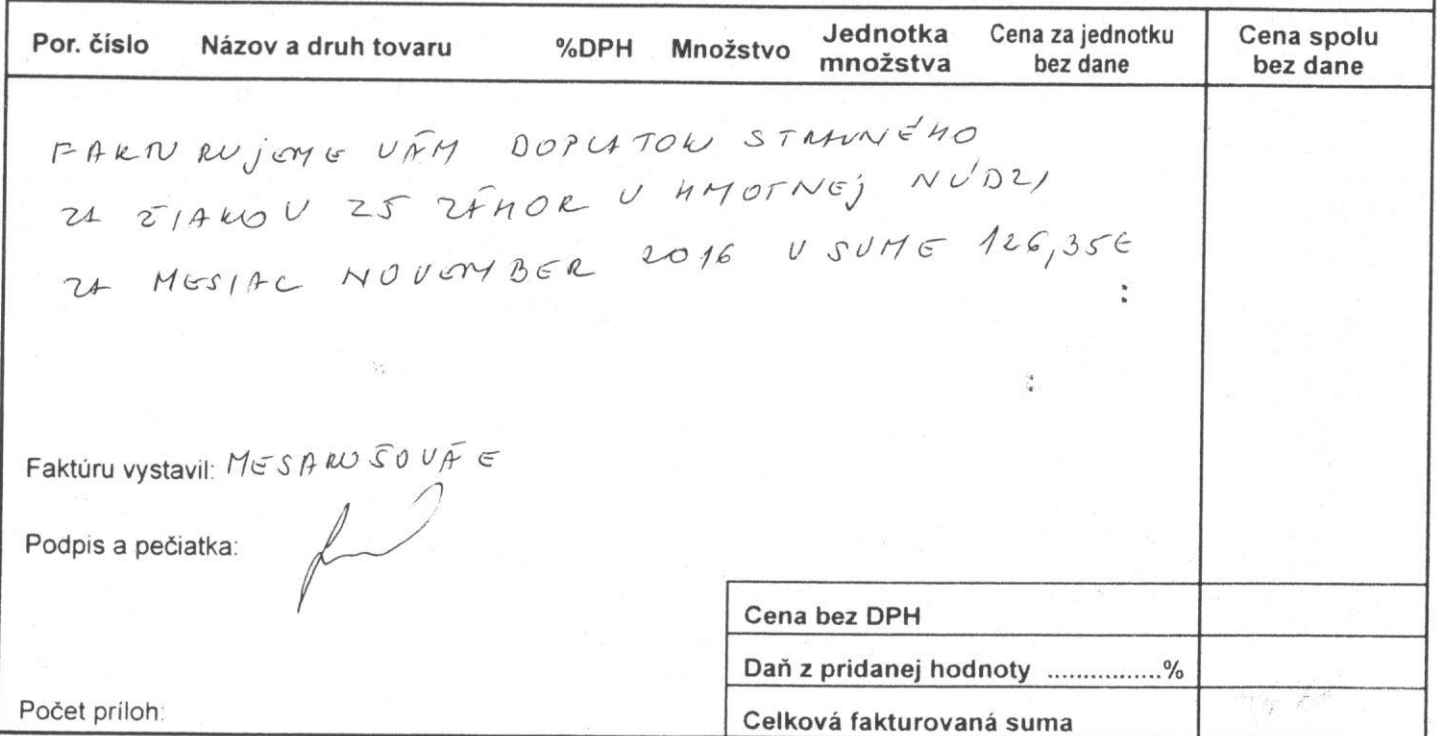 Por. číslo Názov a druh tovaru %DPH Množstvo Jednotka množstva Cena za jednotku bez dane Cena spolu bez dane
FAKTURUJEME VÁM DOPLATOK STRAVNÉHO
ZA ŽIAKOV ZŠ ZÁHOR V HMOTNEJ NÚDZI
ZA MESIAC NOVEMBER 2016 V SUME 126,35€
Faktúru vystavil: MESAROŠOVÁ E
Podpis a pečiatka:
Cena bez DPH
Daň z pridanej hodnoty ................%
Počet príloh:
Celková fakturovaná suma